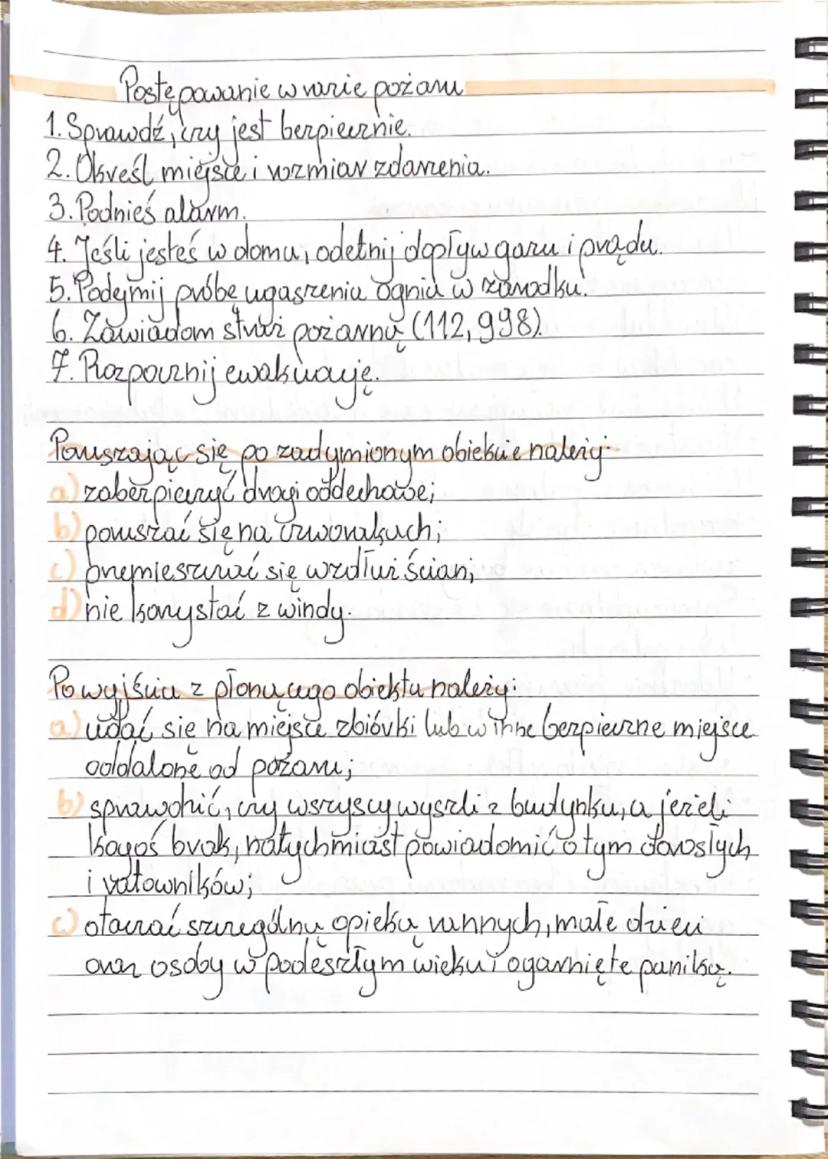 Postępowanie w razie pożaru
1. Sprawdź, czy jest bezpiecznie.
2. Określ miejsce i rozmiar zdarzenia.
3. Podnieś alarm.
4. Jeśli jesteś w domu, odetnij dopływ gazu i prądu.
5. Podejmij próbę ugaszenia ognia w zarodku.
6. Zawiadom straż pożarną (112, 998).
7. Rozpocznij ewakuację.
Poruszając się po zadymionym obiekcie należy:
a) zabezpieczyć drogi oddechowe;
b) poruszać się na czworakach;
c) przemieszczać się wzdłuż ścian;
d) nie korzystać z windy.
Po wyjściu z płonącego obiektu należy:
a) udać się na miejsce zbiórki lub w inne bezpieczne miejsce
oddalone od pożaru;
b) sprawdzić, czy wszyscy wyszli z budynku, a jeżeli
kogoś brak, natychmiast powiadomić o tym dorosłych
i ratowników;
c) otaczać szczególną opieką rannych, małe dzieci
oraz osoby w podeszłym wieku i ogarnięte paniką.